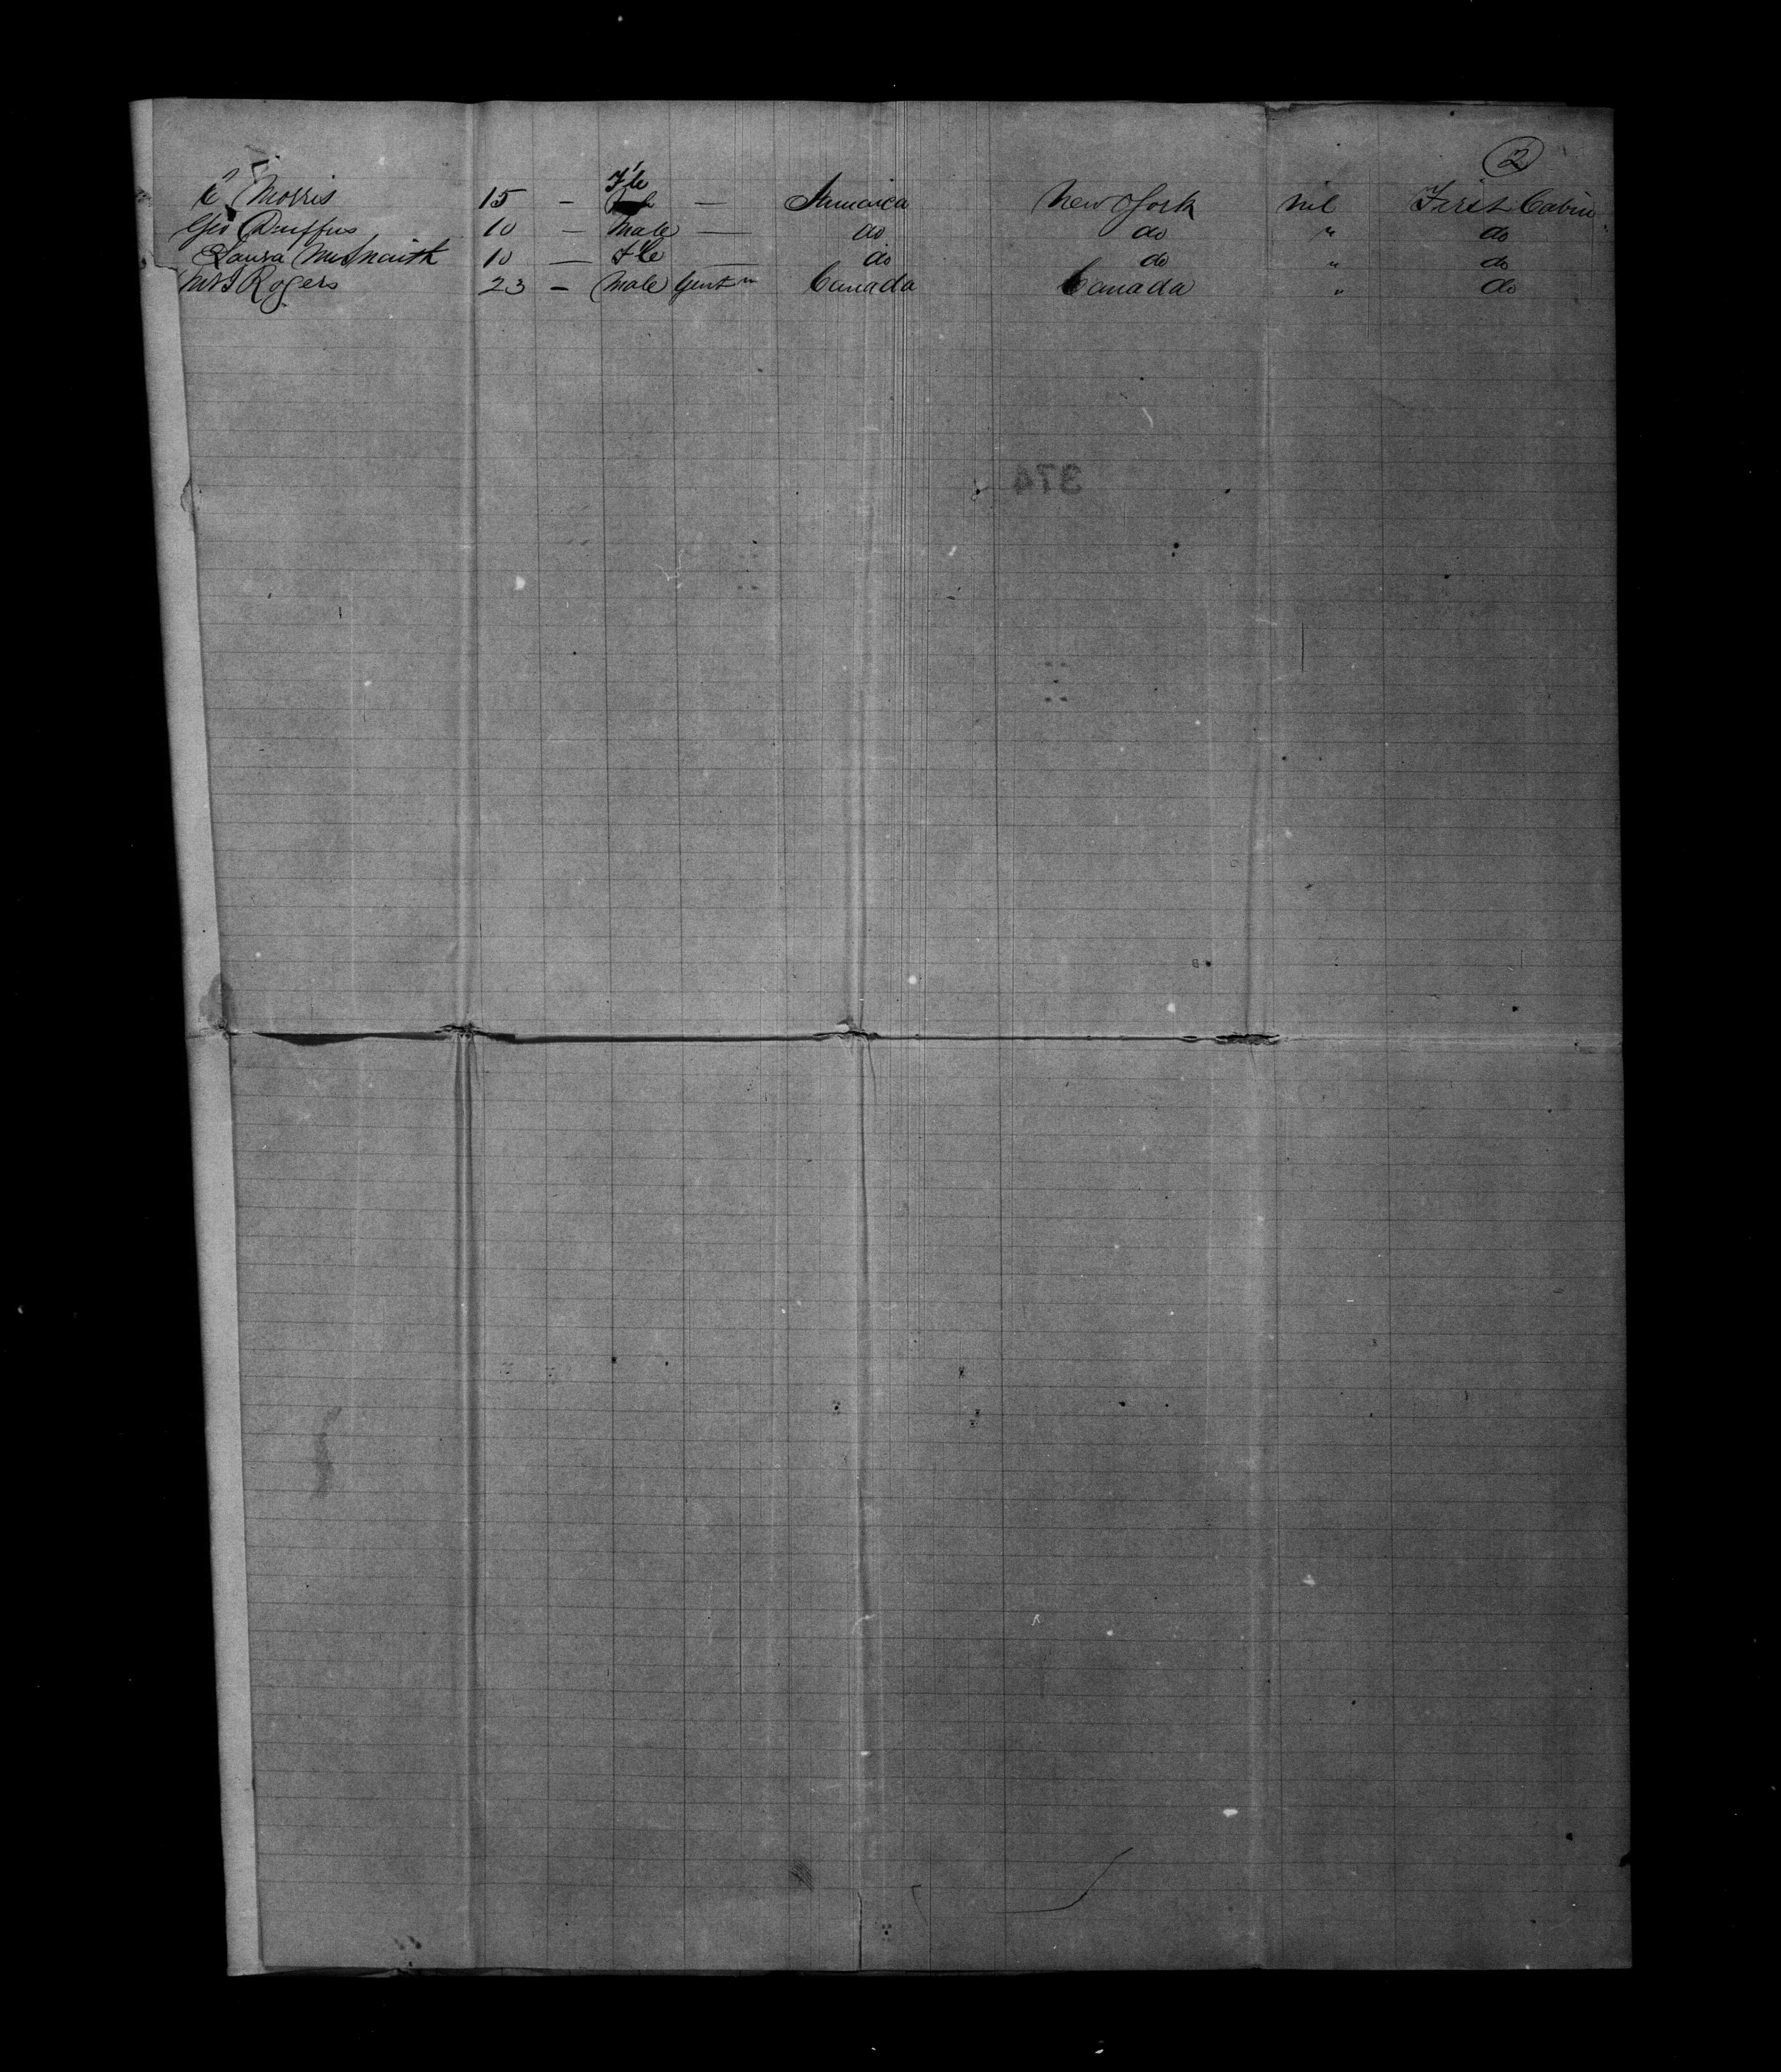 2
F'le
C Morris 15 — — Jamaica New York nil First Cabin
Geo Duffus 10 — Male — do do " do
Laura 10 — F'le — do do " do
Rogers 23 — Male Gentm Canada Canada " do
374